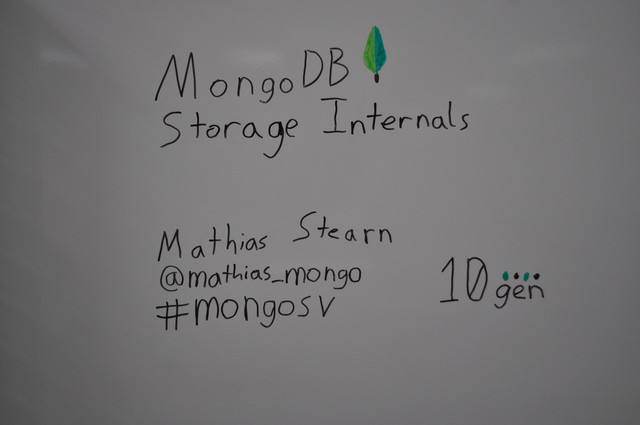 MongoDB
Storage Internals
Mathias Stearn
@mathias_mongo
#mongosv
10gen